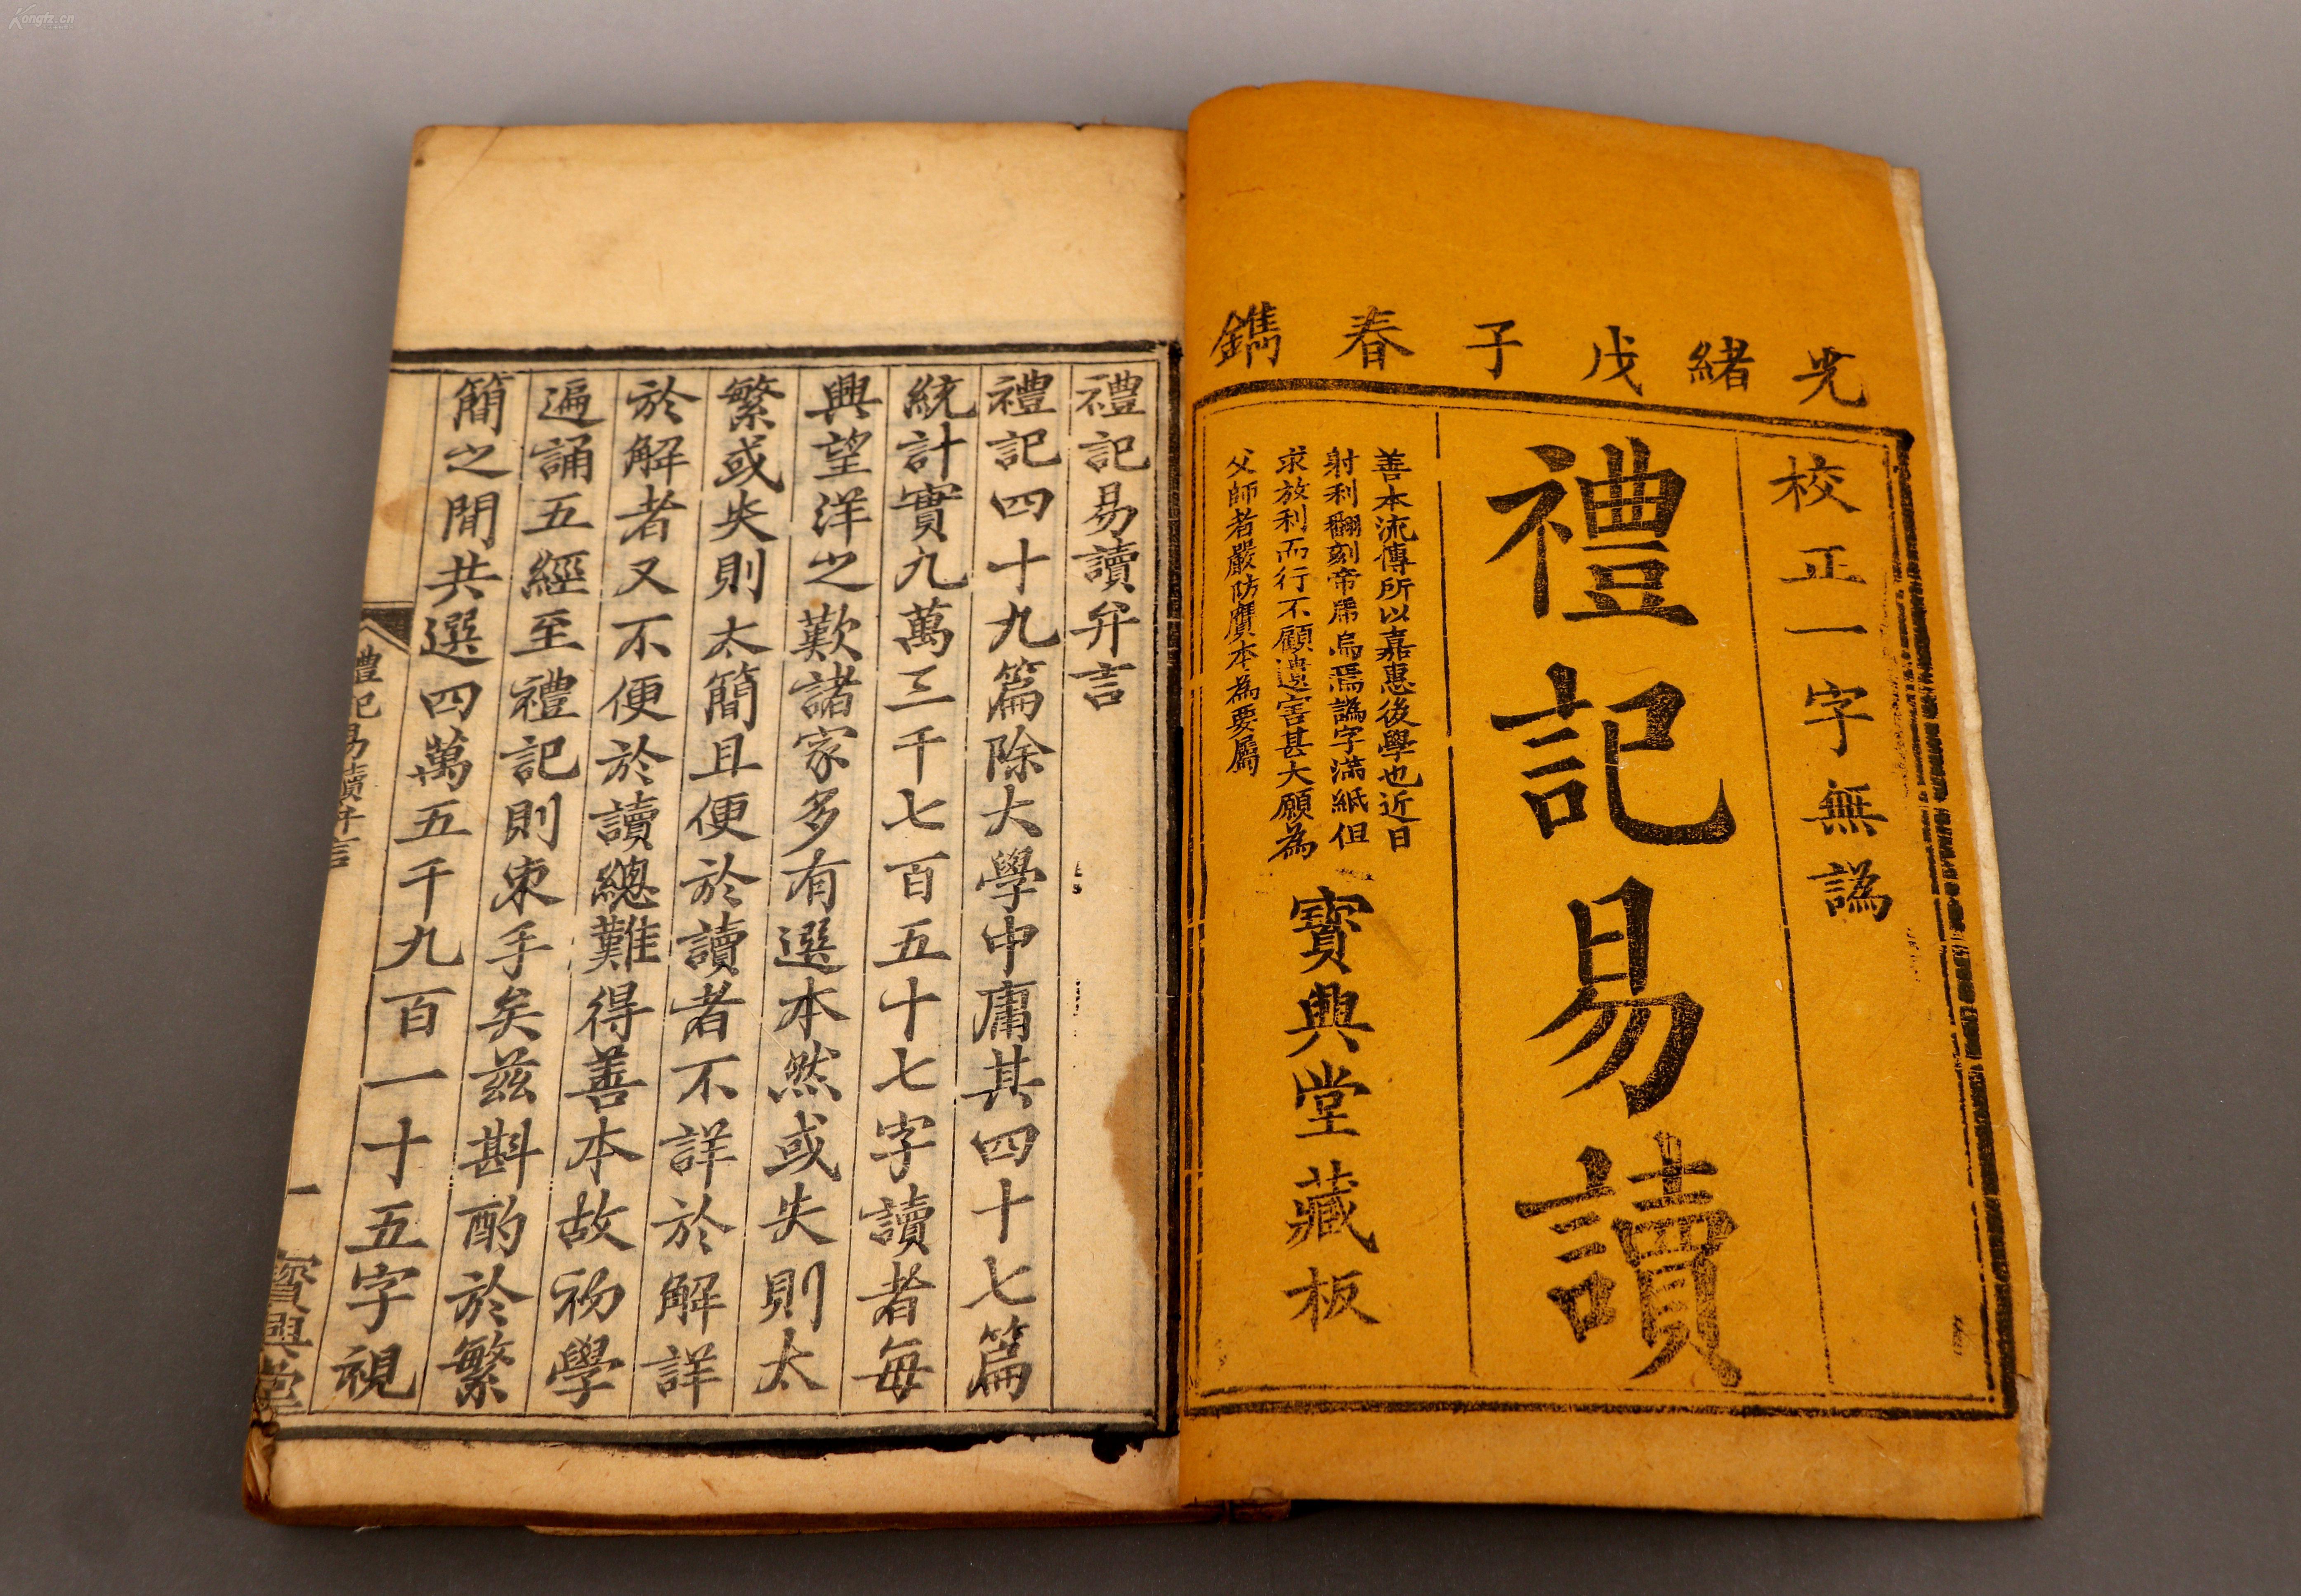 光緒戊子春鐫
校正一字無譌
禮記易讀
善本流傳所以嘉惠後學也近日
射利翻刻帝虎烏焉譌字滿紙但
求放利而行不顧遺害甚大願為
父師者嚴防贗本為要屬
寶興堂藏板
禮記易讀弁言
禮記四十九篇除大學中庸其四十七篇
統計實九萬三千七百五十七字讀者每
興望洋之歎諸家多有選本然或失則太
繁或失則太簡且便於讀者不詳於解詳
於解者又不便於讀總難得善本故初學
遍誦五經至禮記則束手矣茲斟酌於繁
簡之間共選四萬五千九百一十五字視
禮記易讀弁言
一
寶興堂
Kongfz.cn